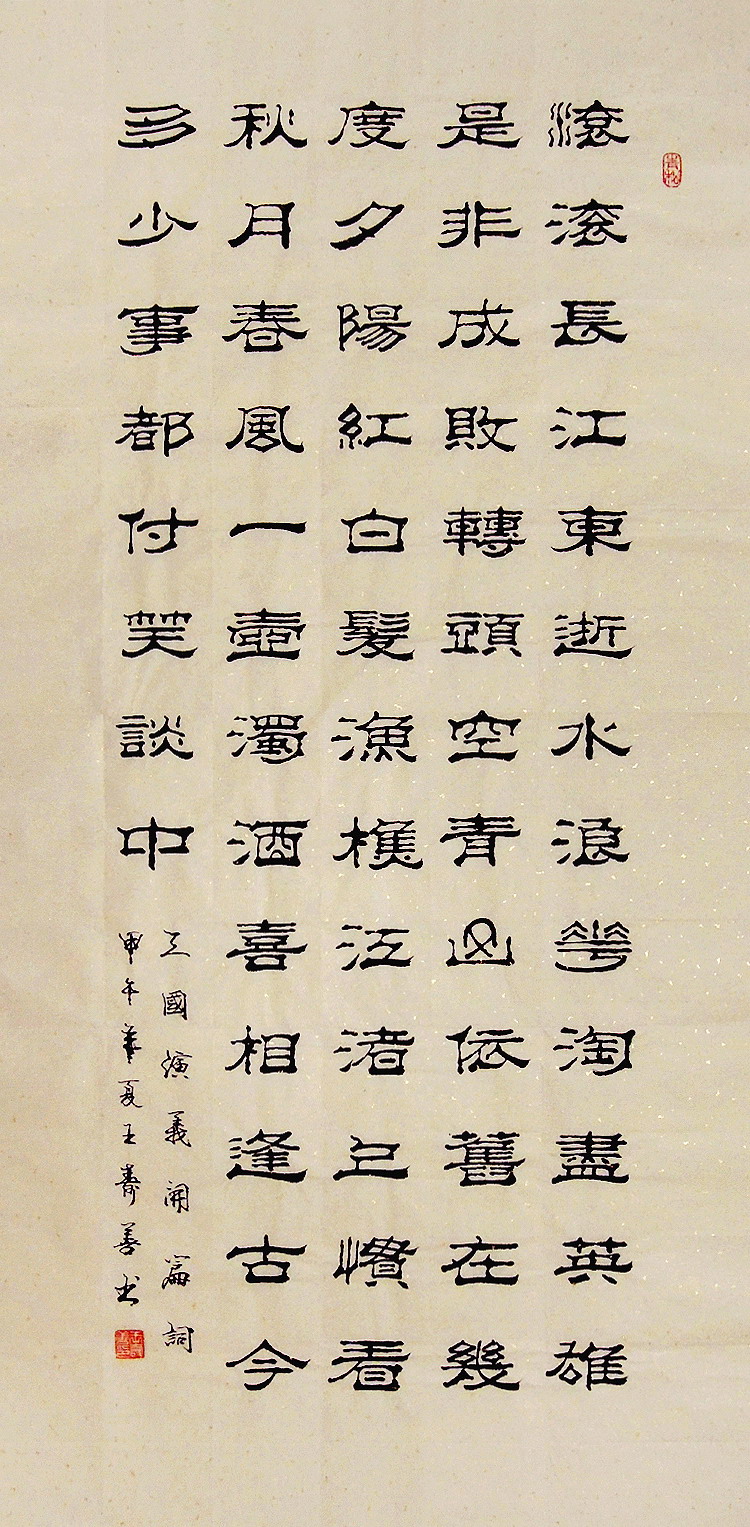 滾滾長江東逝水浪花淘盡英雄
是非成敗轉頭空青山依舊在幾
度夕陽紅白髮漁樵江渚上慣看
秋月春風一壺濁酒喜相逢古今
多少事都付笑談中
三國演義開篇詞
甲午年夏王壽善书